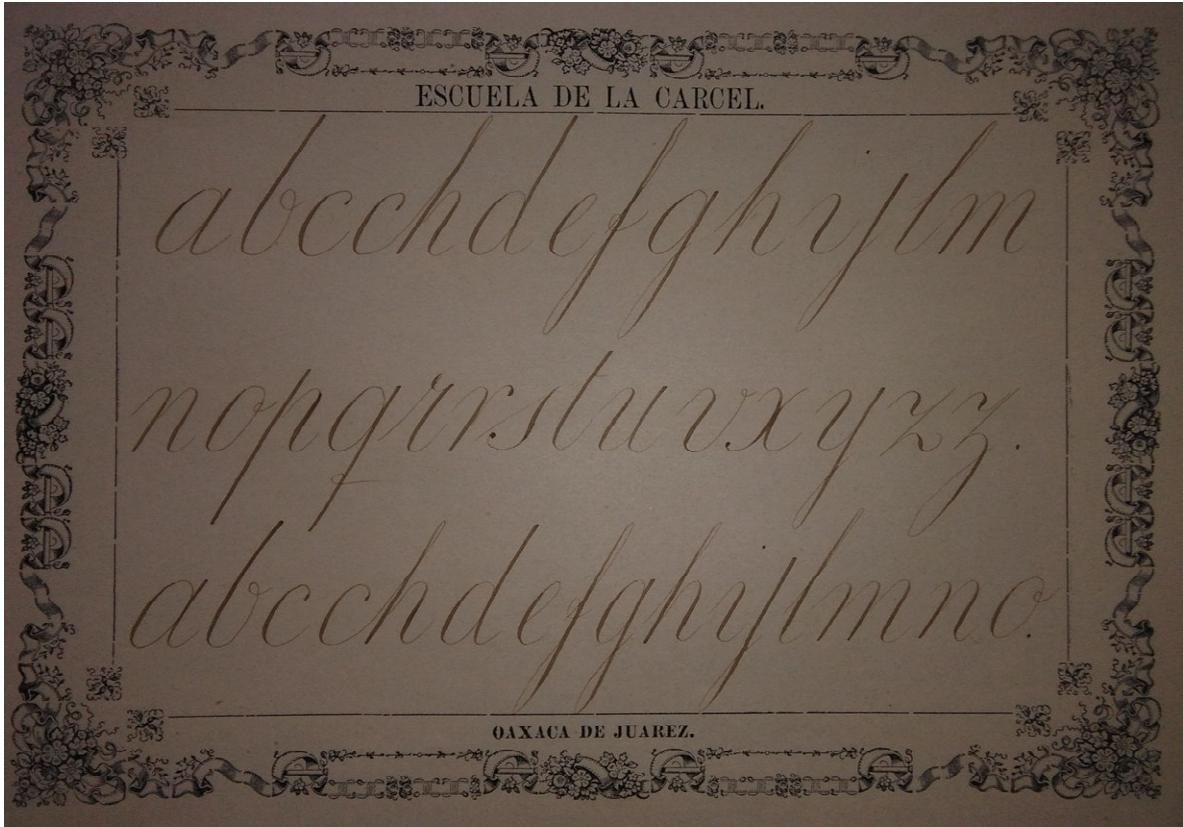 ESCUELA DE LA CARCEL.
abcchdefghyjlm
nopqrrstuvxyzz.
abcchdefghyjlmno.
OAXACA DE JUAREZ.